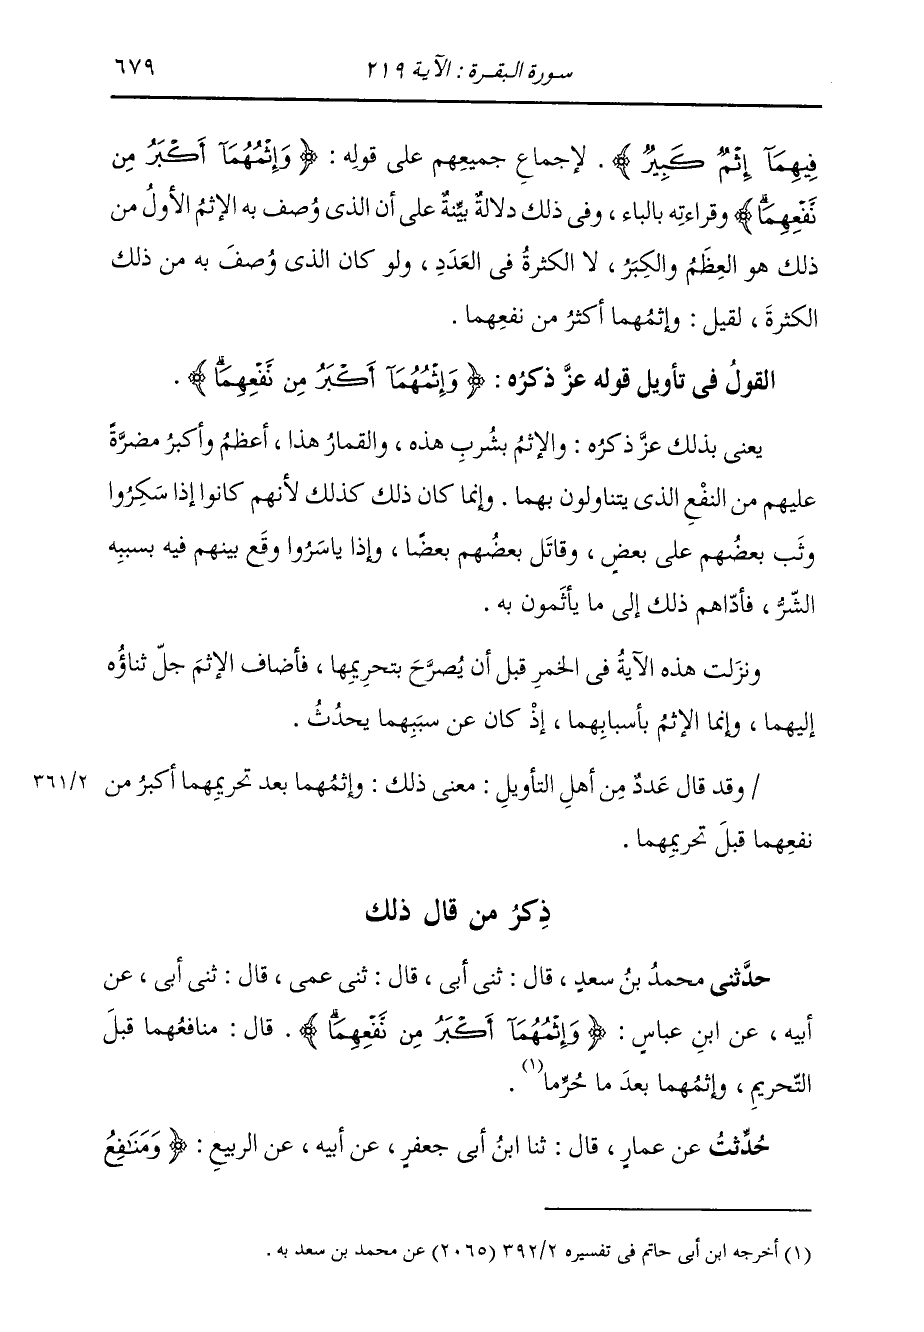 سورة البقرة : الآية ٢١٩ ٦٧٩
فِيهِمَآ إِثْمٌ كَبِيرٌ ﴾ . لإجماعِ جميعِهم على قولِه : ﴿ وَإِثْمُهُمَآ أَكْبَرُ مِن
نَّفْعِهِمَاۗ ﴾ وقراءتِه بالباء ، وفى ذلك دلالةٌ بيِّنةٌ على أن الذى وُصف به الإثمُ الأولُ من
ذلك هو العِظَمُ والكِبَرُ ، لا الكثرةُ فى العَدَدِ ، ولو كان الذى وُصفَ به من ذلك
الكثرةَ ، لقيل : وإثمُهما أكثرُ من نفعِهما .
القولُ فى تأويل قوله عزَّ ذكرُه : ﴿ وَإِثْمُهُمَآ أَكْبَرُ مِن نَّفْعِهِمَاۗ ﴾ .
يعنى بذلك عزَّ ذكرُه : والإثمُ بشُربِ هذه ، والقمارُ هذا ، أعظمُ وأكبرُ مضرَّةً
عليهم من النفْعِ الذى يتناولون بهما . وإنما كان ذلك كذلك لأنهم كانوا إذا سَكِرُوا
وثَب بعضُهم على بعضٍ ، وقاتَل بعضُهم بعضًا ، وإذا ياسَرُوا وقَع بينهم فيه بسببِه
الشّرُّ ، فأدّاهم ذلك إلى ما يأثَمون به .
ونزَلت هذه الآيةُ فى الخمرِ قبل أن يُصرَّحَ بتحريمِها ، فأضاف الإثمَ جلّ ثناؤُه
إليهما ، وإنما الإثمُ بأسبابِهما ، إذْ كان عن سبَبِهما يحدُثُ .
/ وقد قال عَددٌ مِن أهلِ التأويلِ : معنى ذلك : وإثمُهما بعد تحريمِهما أكبرُ من ٣٦١/٢
نفعِهما قبلَ تحريمِهما .
ذِكرُ من قال ذلك
حدَّثنى محمدُ بنُ سعدٍ ، قال : ثنى أبى ، قال : ثنى عمى ، قال : ثنى أبى ، عن
أبيه ، عن ابنِ عباسٍ : ﴿ وَإِثْمُهُمَآ أَكْبَرُ مِن نَّفْعِهِمَاۗ ﴾ . قال : منافعُهما قبلَ
التّحريمِ ، وإثمُهما بعدَ ما حُرِّما(١) .
حُدِّثتُ عن عمارٍ ، قال : ثنا ابنُ أبى جعفرٍ ، عن أبيه ، عن الربيعِ : ﴿ وَمَنَٰفِعُ
(١) أخرجه ابن أبى حاتم فى تفسيره ٣٩٢/٢ (٢٠٦٥) عن محمد بن سعد به .